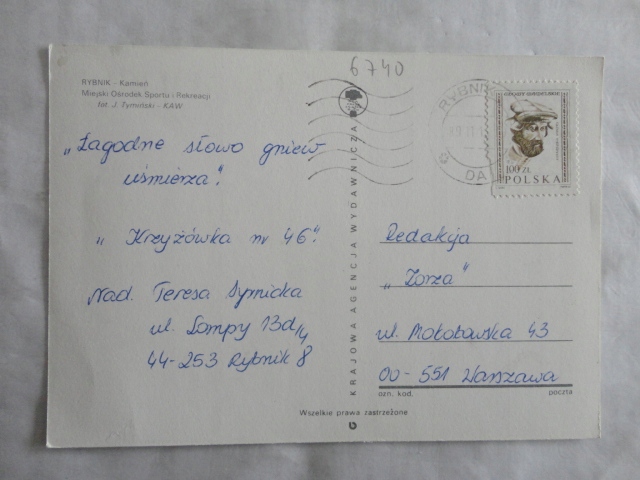 6740
RYBNIK - Kamień
Miejski Ośrodek Sportu i Rekreacji
fot. J. Tymiński - KAW
„Łagodne słowo gniew
uśmierza".
„Krzyżówka nr 46".
Nad. Teresa
ul. Lompy 13d/4
44-253 Rybnik 8
KRAJOWA AGENCJA WYDAWNICZA
RYBNIK
100 ZŁ
POLSKA
Redakcja
„Zorza"
ul. Mokotowska 43
00-551 Warszawa
ozn. kod. poczta
Wszelkie prawa zastrzeżone